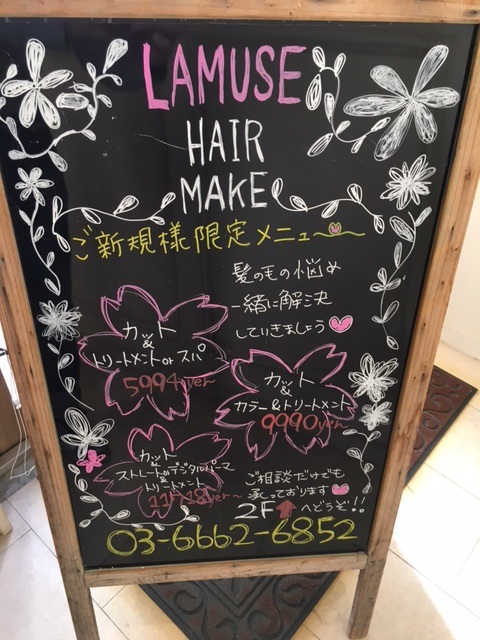 LAMUSE
HAIR
MAKE
ご新規様限定メニュー
髪のもの悩め
一緒に解決
していきましょう
カット
&
トリートメントorスパ
5994yen
カット
&
カラー&トリートメント
9990yen
カット
&
ストレートorデジタルパーマ
&
トリートメント
yen～
ご相談だけでも
承っております
2F⬆へどうぞ!!
03-6662-6852